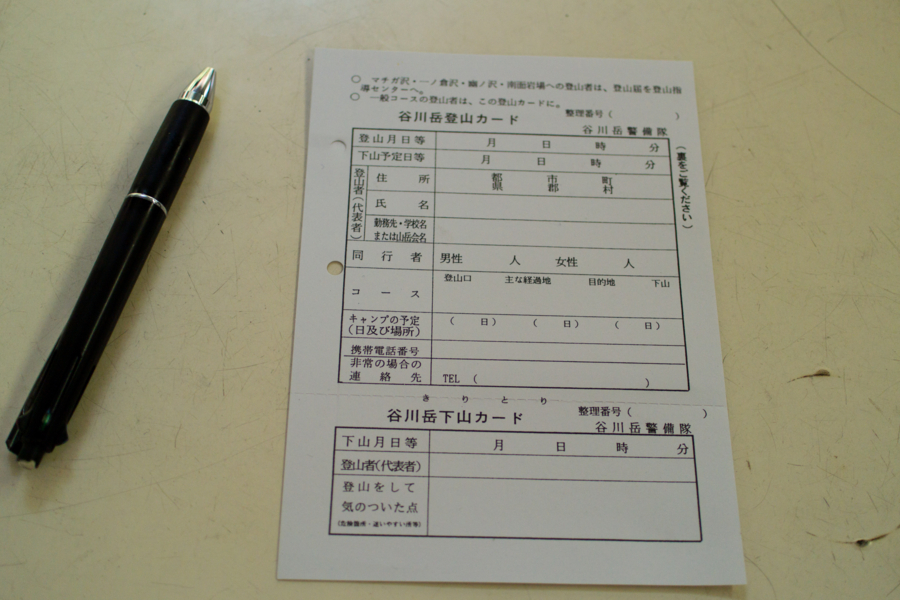 ○ マチガ沢・一ノ倉沢・幽ノ沢・南面岩場への登山者は、登山届を登山指
導センターへ。
○ 一般コースの登山者は、この登山カードに。
整理番号（　　　）
谷川岳登山カード
谷川岳警備隊
（裏をご覧ください）
登山月日等 月 日 時 分
下山予定日等 月 日 時 分
登山者（代表者）
住所 都県 市郡 町村
氏名
勤務先・学校名
または山岳会名
同行者 男性 人 女性 人
コース 登山口 主な経過地 目的地 下山
キャンプの予定
（日及び場所） （ 日） （ 日） （ 日）
携帯電話番号
非常の場合の
連絡先 TEL （　　　）
きりとり
谷川岳下山カード
整理番号（　　　）
谷川岳警備隊
下山月日等 月 日 時 分
登山者（代表者）
登山をして
気のついた点
（危険箇所・迷いやすい所等）